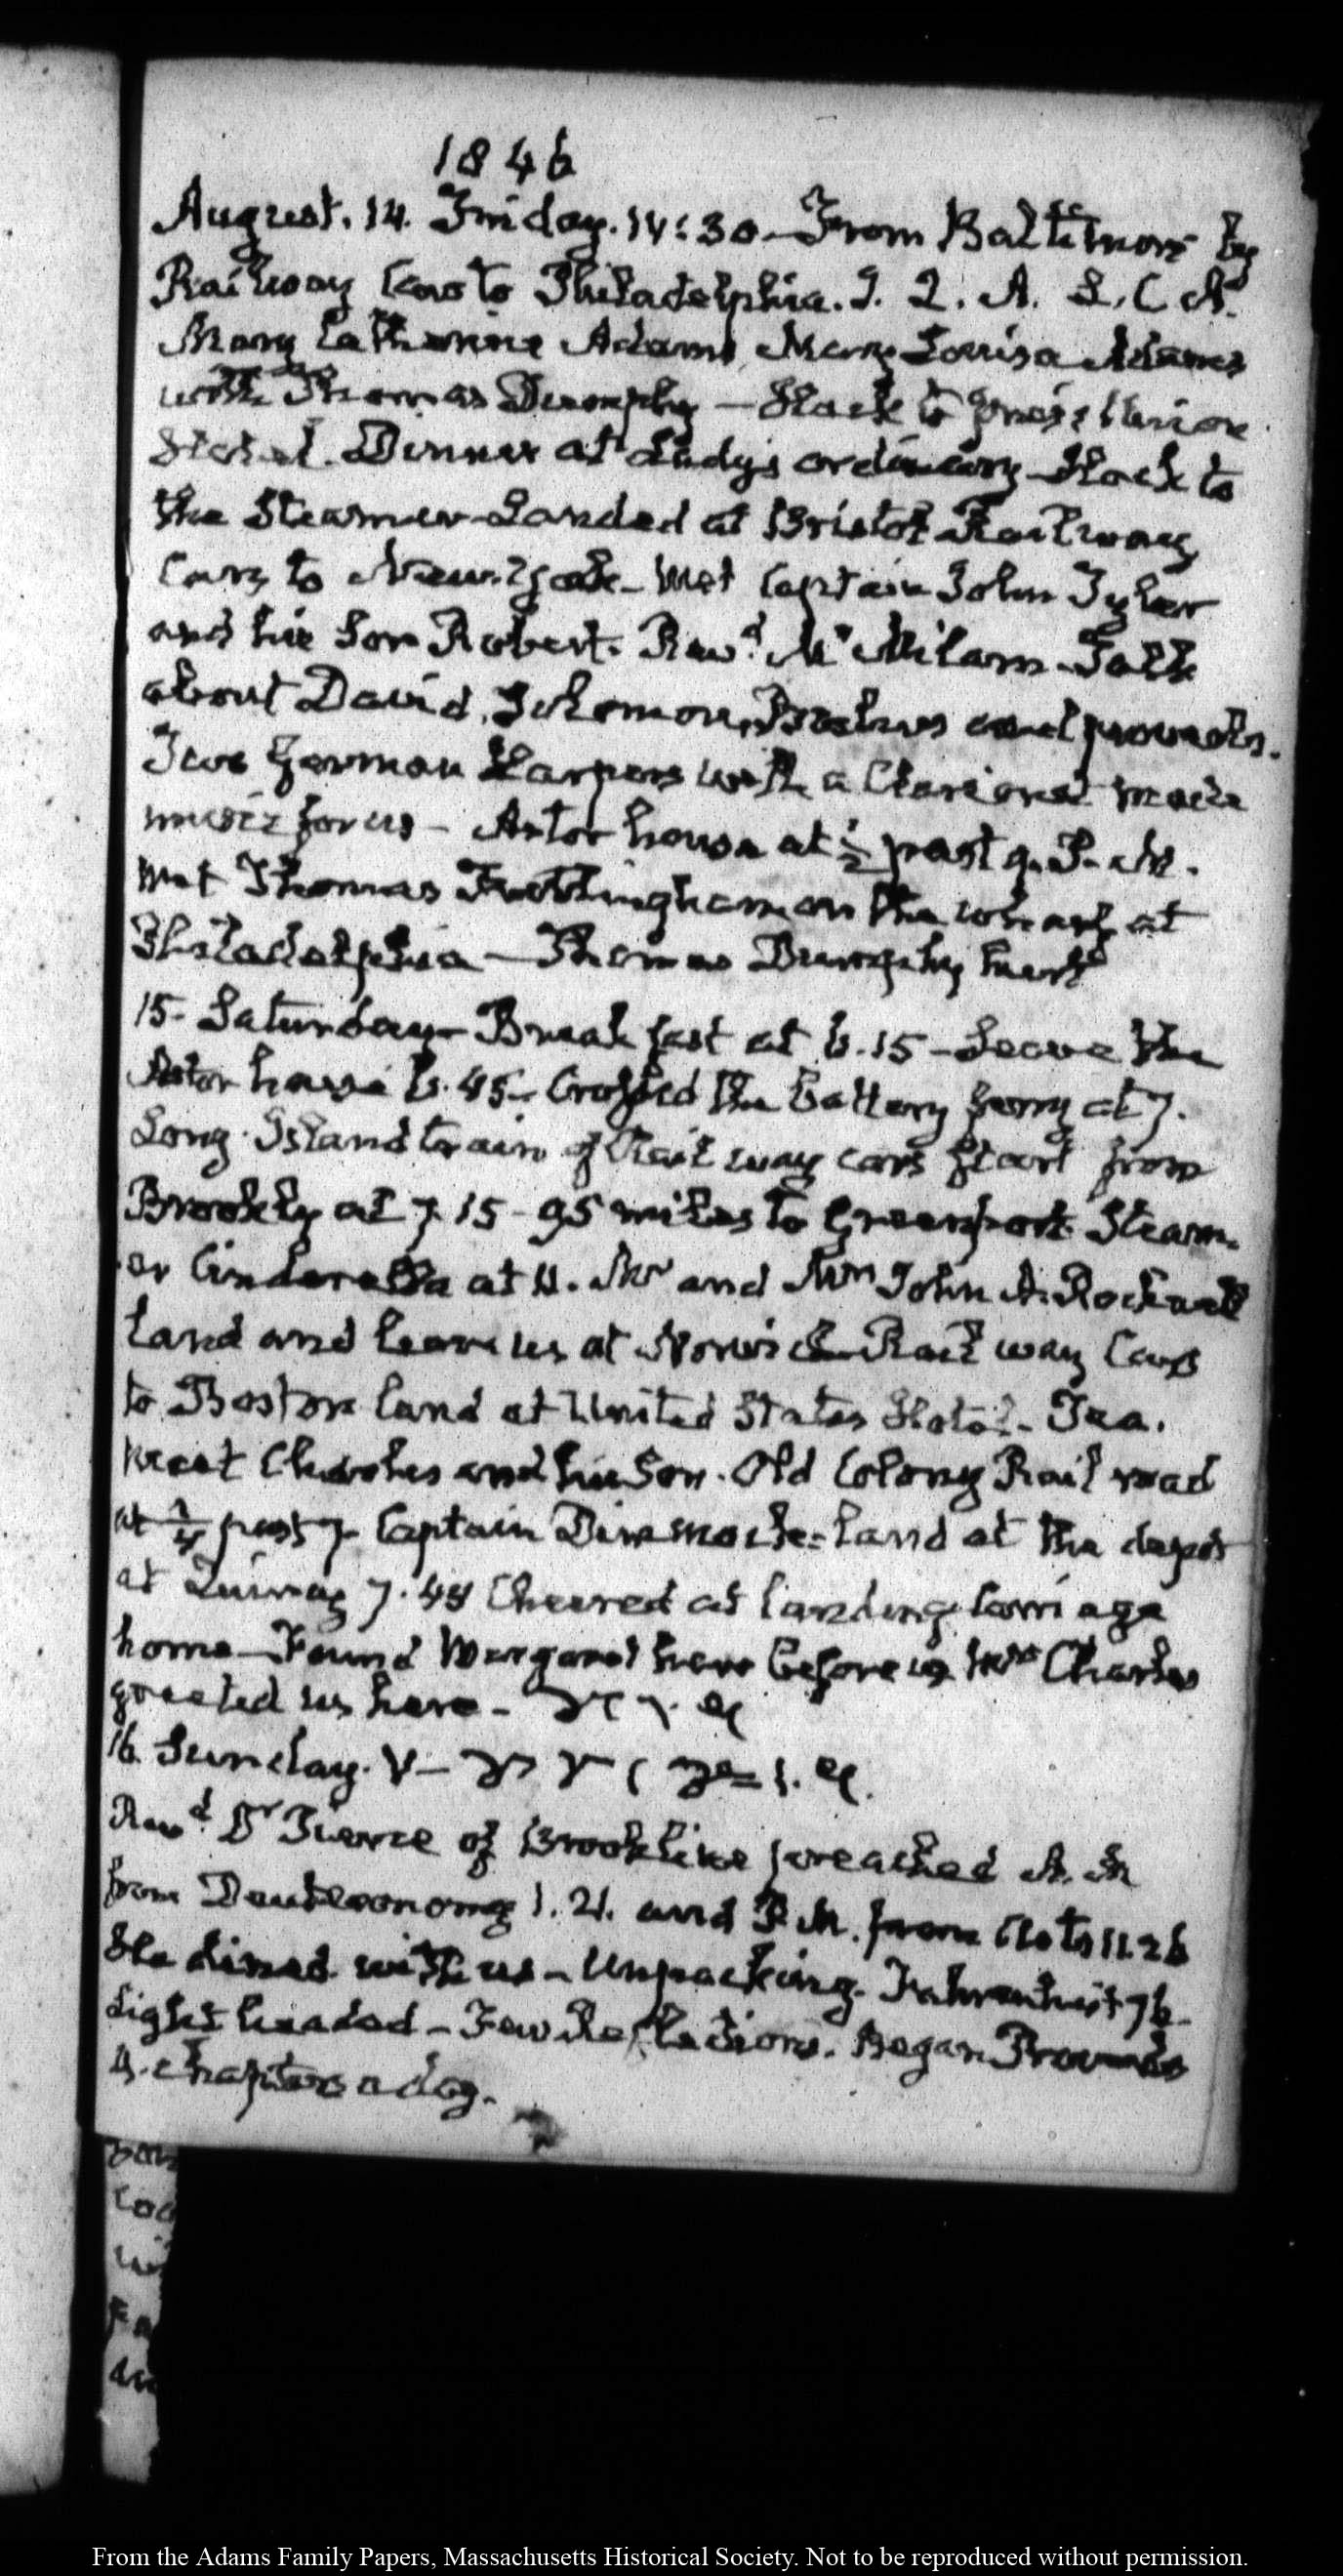 1846
August. 14. Friday. IV:30 — From Baltimore by
Railway Cars to Philadelphia. J. Q. A. L. C A.
Mary Catherine Adams, Mary Louisa Adams
with Thomas Dumphy — Hack to
Hotel. Dinner at Lady's ordinary — Hack to
the Steamer — Landed at Bristol Railway
Cars to New-York — Met Captain John Tyler
and his Son Robert. Revd. Mr Milam — Talk
about David, Solomon, Psalms and proverbs.
Two German Harpers with a Clarionet made
music for us — Astor house at ½ past 9. P. M.
Met Thomas Frothingham on the wharf at
Philadelphia — Thomas Dumphy
15. Saturday — Breakfast at 6.15 — Leave the
Astor house 6.45 — Crossed the Battery ferry at 7.
Long Island train of Rail way cars start from
Brookly at 7. 15 — 95 miles to Greenport. Steam-
er Cinderella at 11. Mr and Mrs John A. Rockwell
land and leave us at Norwich — Rail way Cars
to Boston land at United States Hotel — Tea.
meet Charles and his Son. Old Colony Rail road
at ¼ past 7. Captain Dinsmore — land at the depot
at Quincy 7. 45 Cheered at landing — Carriage
home — Found Margaret here before us Mrs Charles
greeted us here —
16. Sunday. V —
Revd. Dr Pierce of Brookline preached A. M
from Deuteronomy 1. 21. and P. M. from Acts 11. 26
He dined with us — Unpacking. Fahrenheit 76 —
Light headed — Few Reflections. Began Proverbs
4. chapters a day.